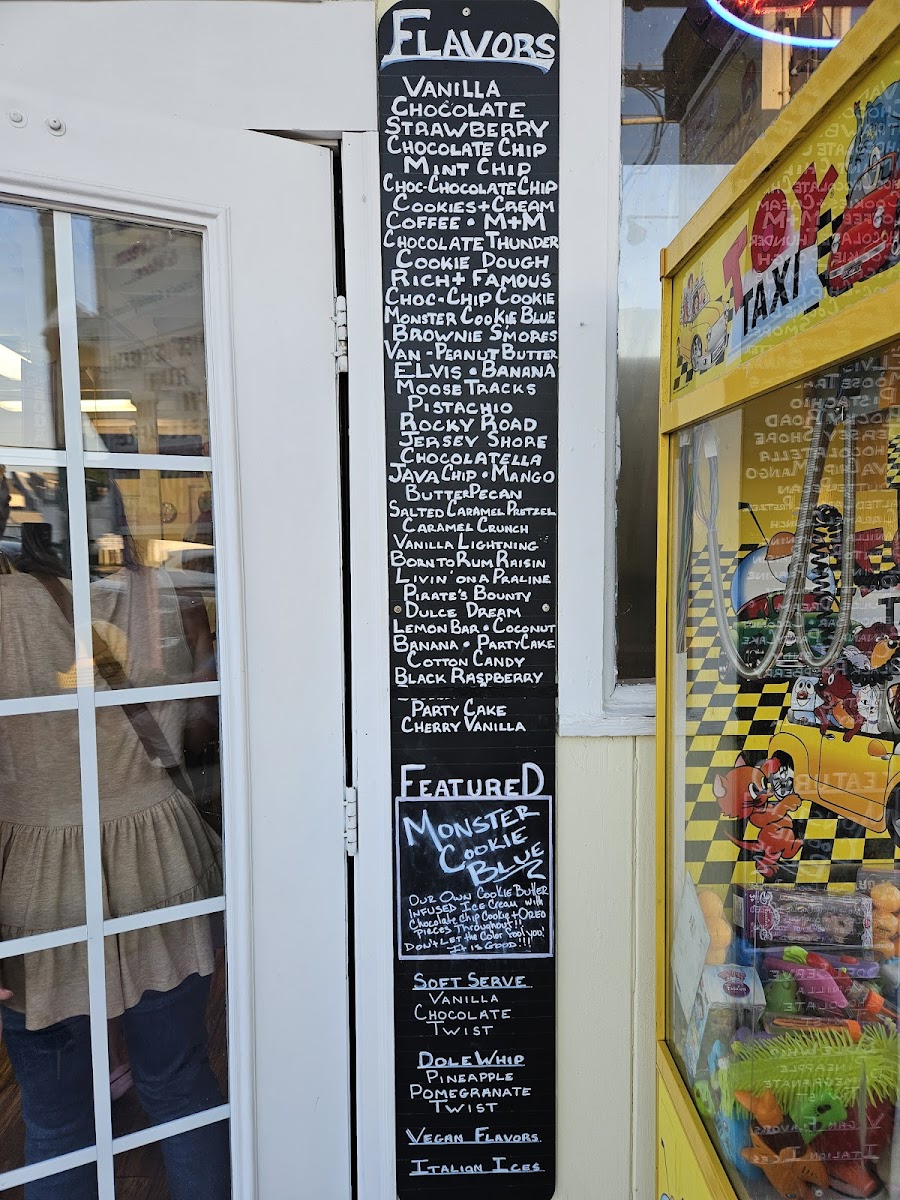 FLAVORS
VANILLA
CHOCOLATE
STRAWBERRY
CHOCOLATE CHIP
MINT CHIP
CHOC-CHOCOLATE CHIP
COOKIES+CREAM
COFFEE • M+M
CHOCOLATE THUNDER
COOKIE DOUGH
RICH+ FAMOUS
CHOC-CHIP COOKIE
MONSTER COOKIE BLUE
BROWNIE S'MORES
VAN-PEANUT BUTTER
ELVIS • BANANA
MOOSE TRACKS
PISTACHIO
ROCKY ROAD
JERSEY SHORE
CHOCOLATELLA
JAVA CHIP • MANGO
BUTTER PECAN
SALTED CARAMEL PRETZEL
CARAMEL CRUNCH
VANILLA LIGHTNING
BORN TO RUM RAISIN
LIVIN' ON A PRALINE
PIRATE'S BOUNTY
DULCE DREAM
LEMON BAR • COCONUT
BANANA • PARTY CAKE
COTTON CANDY
BLACK RASPBERRY
PARTY CAKE
CHERRY VANILLA
FEATURED
MONSTER
COOKIE
BLUE
OUR OWN COOKIE BUTTER
INFUSED ICE CREAM with
Chocolate Chip Cookie + OREO
PIECES Throughout!!
DON't LET the Color Fool you!
It is GOOD!!!
SOFT SERVE
VANILLA
CHOCOLATE
TWIST
DOLE WHIP
PINEAPPLE
POMEGRANATE
TWIST
VEGAN FLAVORS
ITALIAN ICES
TOY
TAXI